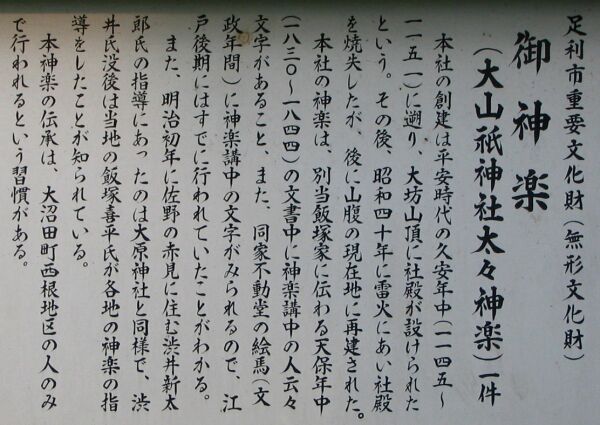 足利市重要文化財(無形文化財)
御神楽
(大山祇神社太々神楽)一件
本社の創建は平安時代の久安年中(一一四五~
一一五一)に遡り、大坊山頂に社殿が設けられた
という。その後、昭和四十年に雷火にあい社殿
を焼失したが、後に山腹の現在地に再建された。
本社の神楽は、別当飯塚家に伝わる天保年中
(一八三〇~一八四四)の文書中に神楽講中の人云々
文字があること、また、同家不動堂の絵馬(文
政年間)に神楽講中の文字がみられるので、江
戸後期にはすでに行われていたことがわかる。
また、明治初年に佐野の赤見に住む渋井新太
郎氏の指導にあったのは大原神社と同様で、渋
井氏没後は当地の飯塚喜平氏が各地の神楽の指
導をしたことが知られている。
本神楽の伝承は、大沼田町西根地区の人のみ
で行われるという習慣がある。